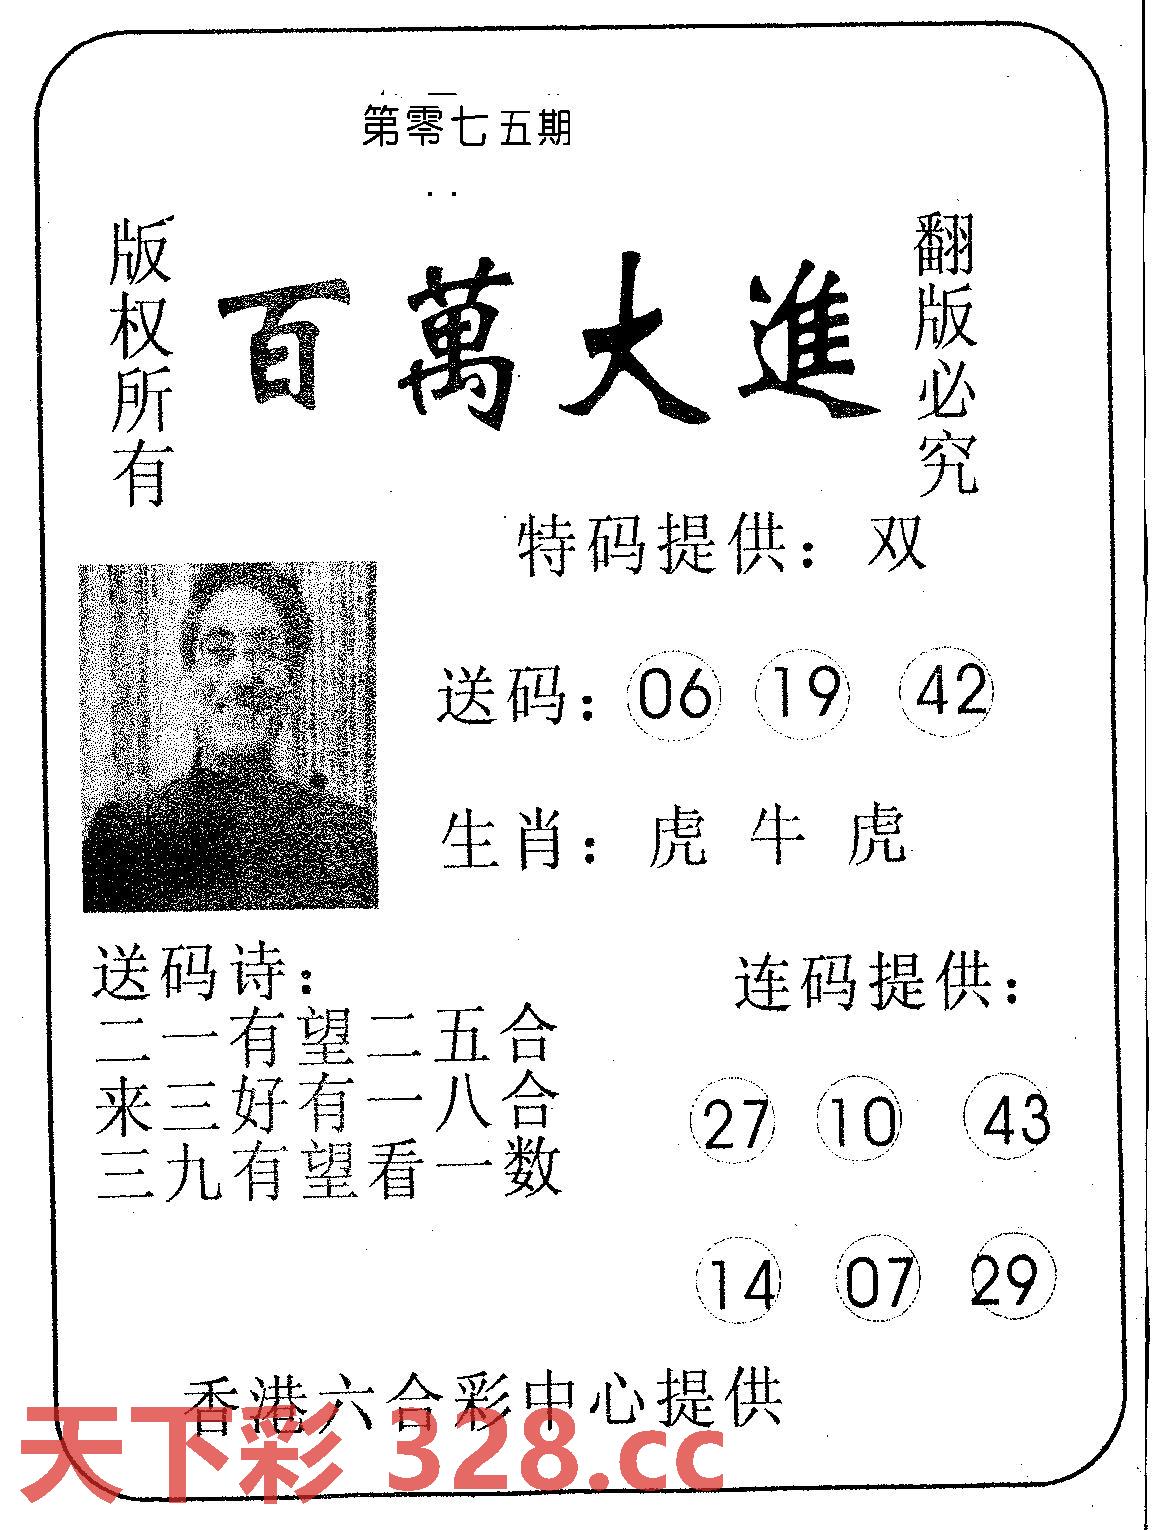 第零七五期
版权所有
百萬大進
翻版必究
特码提供：双
送码：06 19 42
生肖：虎 牛 虎
送码诗：
二一有望二五合
来三好有一八合
三九有望看一数
连码提供：
27 10 43
14 07 29
香港六合彩中心提供
天下彩 328.cc